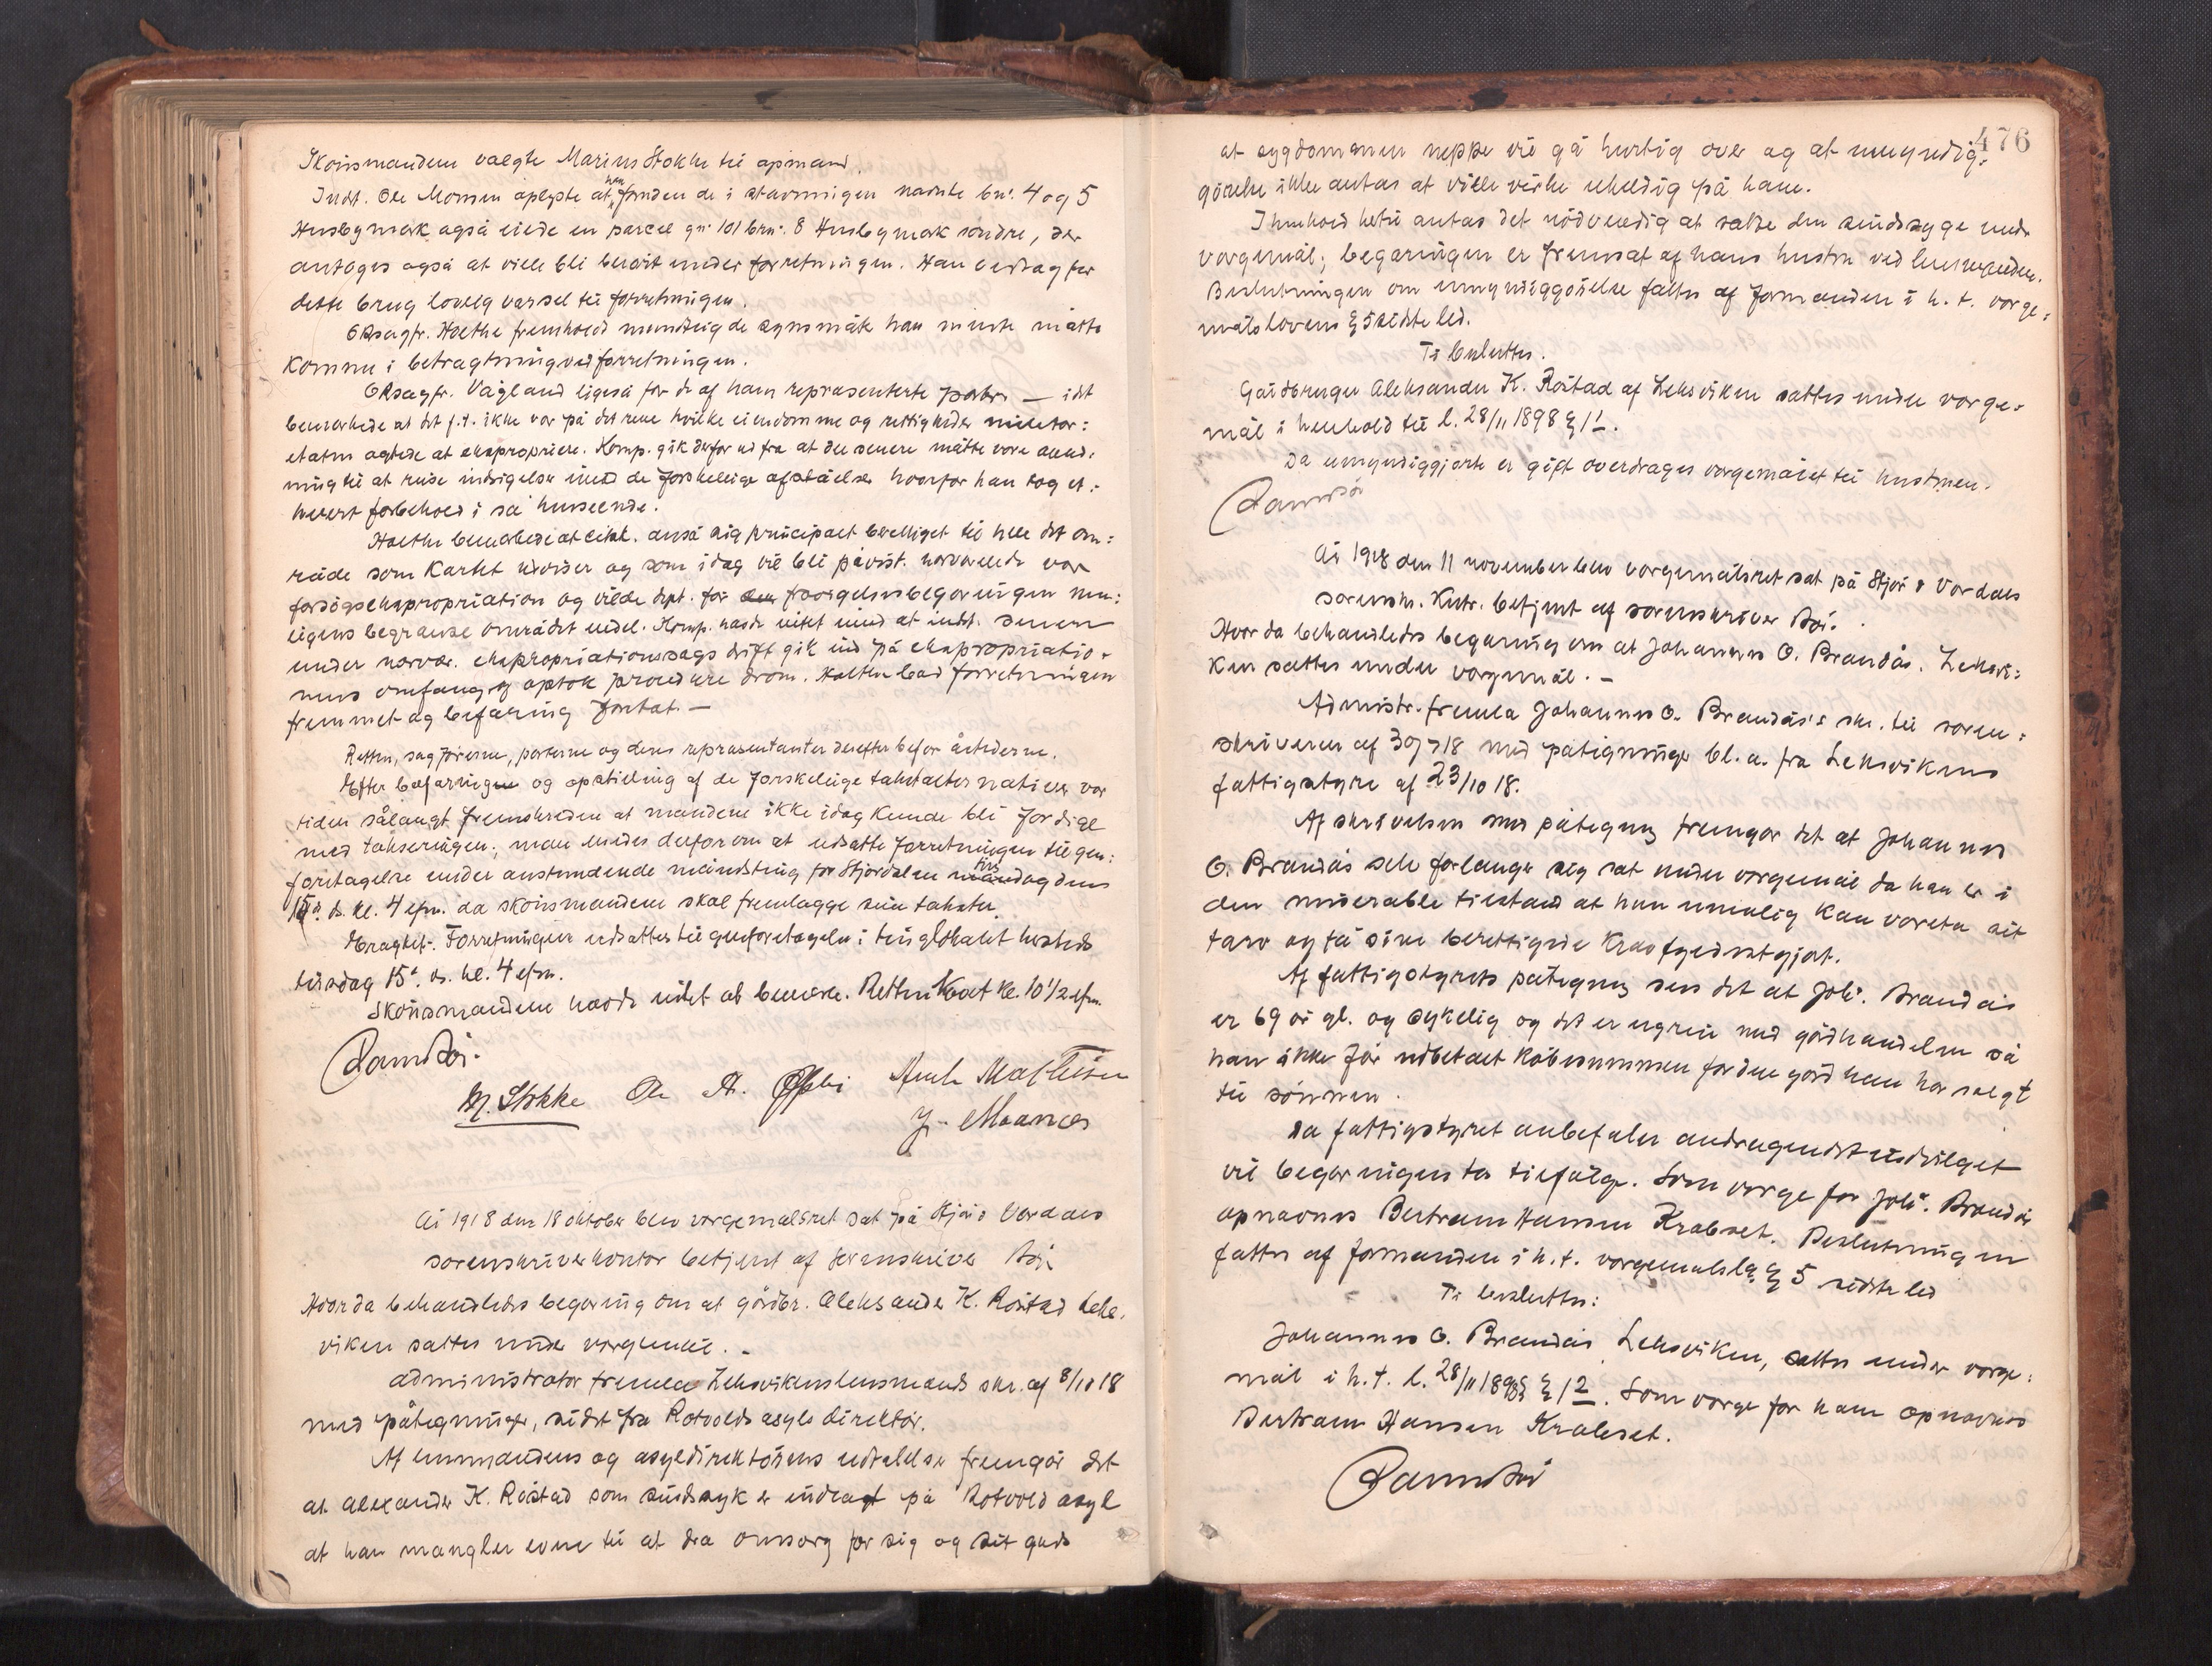 Skönsmændene valgte Marius Stokke til opmand.
Indst. Ole Monsen oplyste at han foruden de i stævningen nævnte bn: 4 og 5
Husbymark også eiede en parcel gn: 101 brn: 8 Husbymark söndre, der
antoges også at ville bli berört under forretningen. Han vedtog for
dette brug lovlig varsel til forretningen.
ORsagfr. Holthe fremholdt mundtlig de synsmåter han mente måtte
komme i betragtning ved forretningen.
ORsagfr. Vågland ligeså for de af ham repræsenterte parter — idet
bemerkede at det f.t. ikke var på det rene hvilke eiendomme og rettigheder militær:
etaten agtede at ekspropriere. Komp. gik derfor ud fra at der senere måtte være anled:
ning til at reise indsigelse imod de forskjellige afståelser hvorfor han tog et:
hvert forbehold i så henseende.
Holthe bemerkede at citat. anså sig principalt bevilliget til hele det om:
råde som kartet utviser og som idag vil bli påvist. nærværende var
forsögsekspropriation og vilde dept. for
eligens begrænse området endel. Komp. havde intet imod at indst. senere
under nærvær. ekspropriationssags drift gik ind på ekspropriatio-
nens omfang og optok procedure derom. Holthe bad forretningen
fremmet og befaring foretat. —
Retten, sagförerne, parterne og deres repræsentanter derefter befor åstederne.
Efter befaringen og opstilling af de forskjellige takstalternativer var
tiden sålangt fremskreden at mændene ikke idag kunde bli færdige
med takseringen; man enedes derfor om at udsætte forretningen til gen:
foretagelse under anstundende månedsting for Stjördalen tirsdag dens
15de ds. kl. 4 efm. da skönsmændene skal fremlægge sin takster.
Eragtet: Forretningen udsættes til genforetagelse i tinglokalet hersteds
tirsdag 15de ds. kl. 4 efm.
Skönsmændene havde intet at bemerke. Retten hævet kl. 10 1/2 efm.
M. Stokke Ole A. Opli Anth Mathisen
J. Moanes
År 1918 den 18 oktober blev vergemålsret sat på Stjör- & Værdals
sorenskriverkontor betjent af sorenskriver Böi
Hvor da behandledes begæring om at gårdbr. Aleksander K. Röstad Leks-
viken sættes under vergemål. -
Administrator fremla Leksvikens lensmands skr. af 8/10 18
med påtegninger, sidst fra Rotvolds asyls direktör.
Af lensmandens og asyldirektörens udtalelser fremgår det
at Alexander K. Röstad som sindssyk er indlagt på Rotvold asyl
at han mangler evne til at dra omsorg for sig og sit gods
476
at sygdommen neppe vil gå hurtig over og at umyndig-
görelse ikke antas at ville virke uheldig på ham.
I henhold hertil antas det nödvendig at sætte den sindssyge under
vergemål; begæringen er fremsat af hans hustru ved lensmanden.
Beslutningen om umyndiggörelse fattes af formanden i h. t. verge:
målslovens § 5 sidste led.
Ti besluttes:
Gårdbruger Aleksander K. Röstad af Leksviken sættes under verge-
mål i henhold til l. 28/11 1898 § 1 1.
Da umyndiggjorte er gift overdrages vergemålet til hustruen.
År 1918 den 11 november blev vergemålsret sat på Stjör & Værdals
sorenskr. kntr. betjent af sorenskriver Böi.
Hvor da behandledes begæring om at Johannes O. Brandås. Leksvi:
ken sættes under vergemål. -
Administr. fremla Johannes O. Brandås's skr. til soren:
skriveren af 30/7 18 med påtegninger bl. a. fra Leksvikens
fattigstyre af 23/10 18.
Af skrivelsen med påtegning fremgår det at Johannes
O. Brandås selv forlanger sig sat under vergemål da han er i
den miserable tilstand at han umulig kan vareta sit
tarv og få sine berettigede krav fyldestgjort.
Af fattigstyrets påtegning sees det at Johs. Brandås
er 69 år gl. og sykelig og det er ugrei med gårdhandelen så
han ikke får udbetalt köbesummen for den gård han har solgt
til sönnen.
Da fattigstyret anbefaler andragendet indvilget
vil begæringen ta tilfölge. Som verge for Johs. Brandås
opnævnes Bertram Hansen Krabset. Beslutningen
fattes af formanden i h. t. vergemålslg. § 5 sidste led
Ti besluttes:
Johannes O. Brandås, Leksviken, sættes under verge:
mål i h. t. l. 28/11 1898 § 1 2. Som verge for ham opnævnes
Bertram Hansen Krabset.